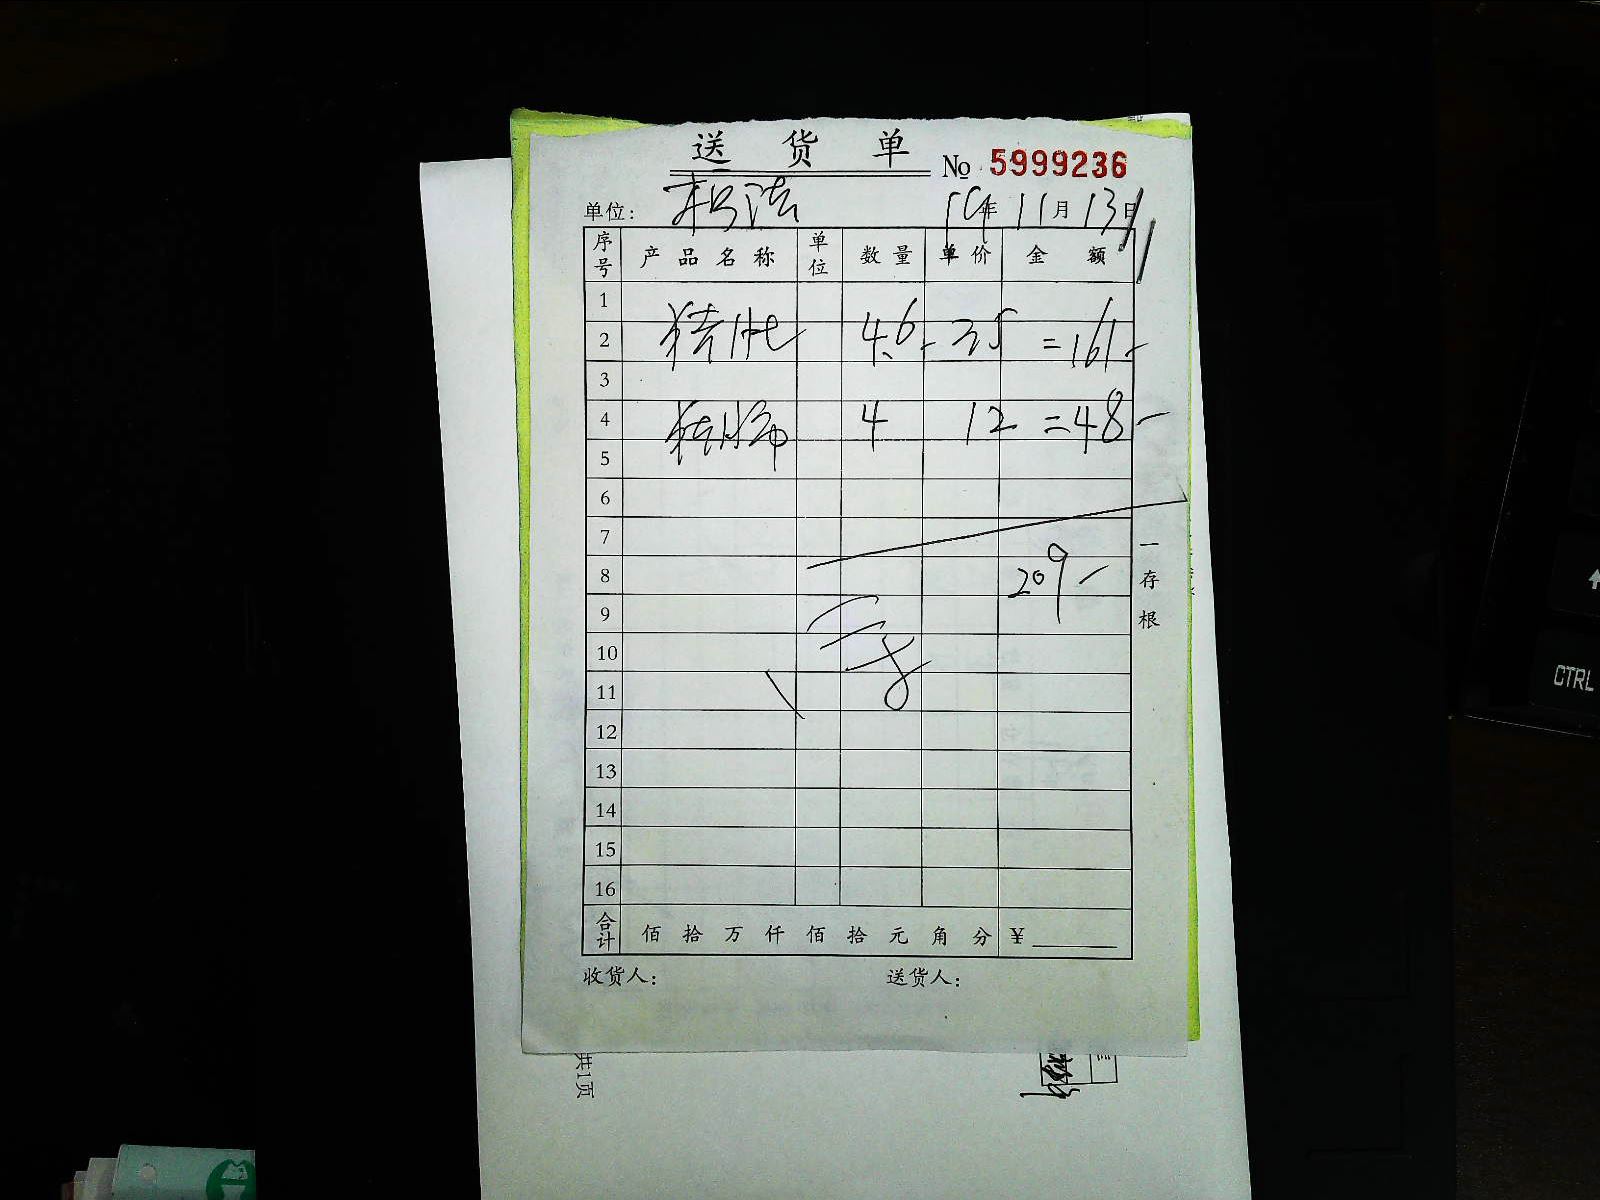 送货单
№ 5999236
单位: 年 11月 13日
序号 产品名称 单位 数量 单价 金额
1
2 猪 4.6- 35 =161-
3
4 猪 4 12 =48-
5
6
7
8 209-
9
10
11
12
13
14
15
16
合计 佰 拾 万 仟 佰 拾 元 角 分 ¥
收货人: 送货人:
一存根
共1页
CTRL